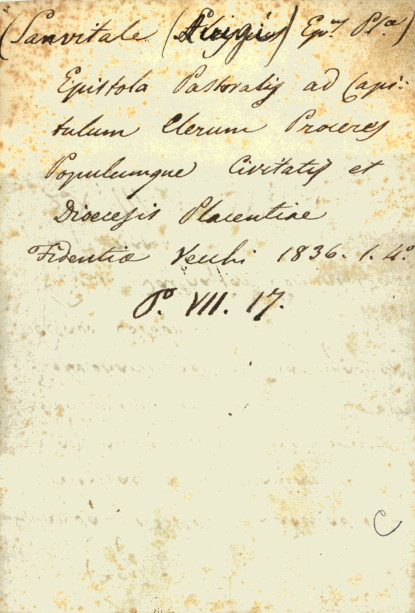 (Sanvitale (Luigi) Ep.us Pl.ae)
Epistola Pastoralis ad Capi:
tulum Clerum Proceres
Populumque Civitatis et
Dioecesis Placentiae
Fidentiae Vecchi 1836. 1. 4.o
P. VII. 17.
C